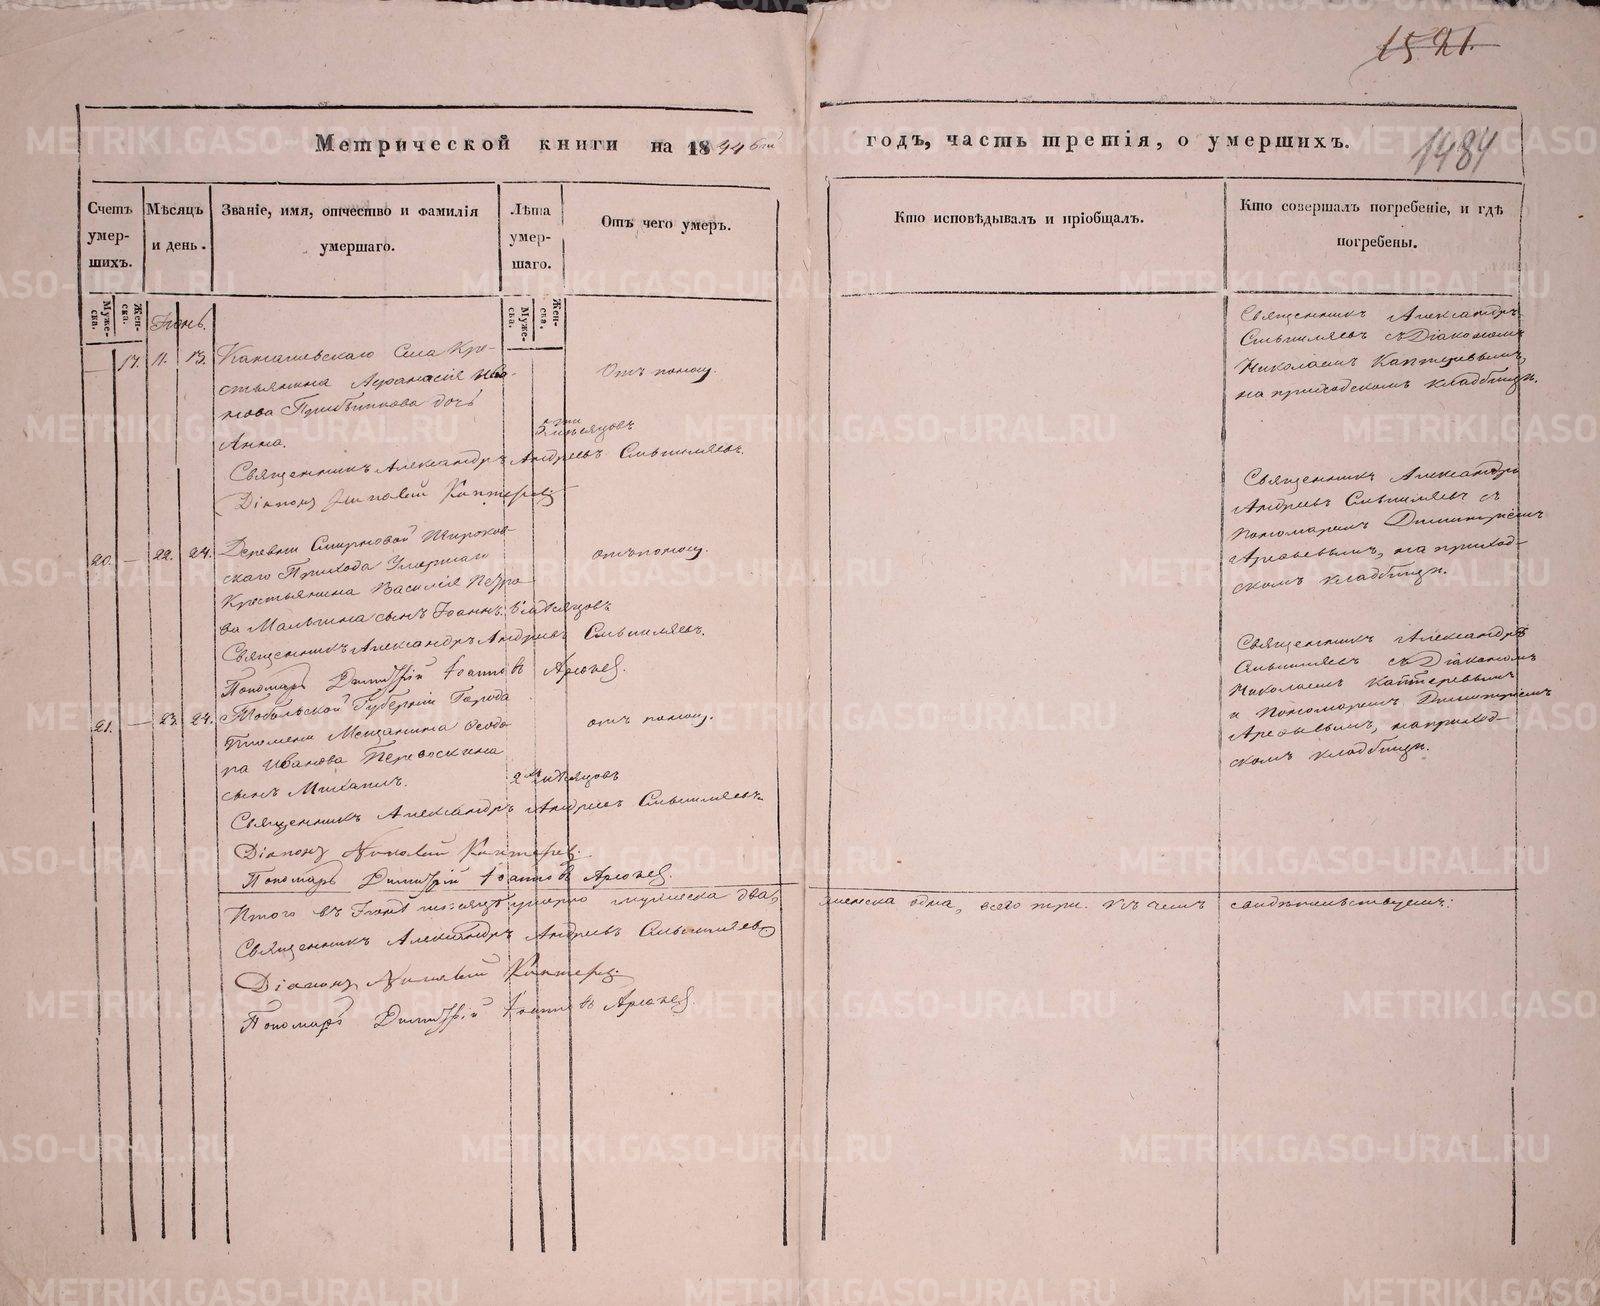 15 21.
1484
Метрической книги на 1844 годъ, часть третія, о умершихъ.
Счетъ умер-шихъ.
Мѣсяцъ и день.
Званіе, имя, отчество и фамилія умершаго.
Лѣта умер-шаго.
Отъ чего умеръ.
Кто исповѣдывалъ и пріобщалъ.
Кто совершалъ погребеніе, и гдѣ погребены.
Муже-ска.
Жен-ска.
Муже-ска.
Жен-ска.
Іюнь.
— 17. 11. 13.
Села Кре-
стьянина Афанасія Ива-
нова дочь
Анна.
5 мѣсяцовъ
Отъ поносу.
Священникъ Александръ Андреевъ
Діаконъ Николай Каптеревъ
Священникъ Александръ
съ Діакономъ
Николаемъ Каптеревымъ,
на приходскомъ кладбищѣ.
20. — 22. 24.
Деревни Смирновой Широков-
скаго Прихода Умершаго
Крестьянина Василія Петро-
ва Мальгина сынъ Іоаннъ. 6 мѣсяцовъ
отъ поносу.
Священникъ Александръ Андреевъ
Пономарь Димитрій Іоанновъ Арефьев.
Священникъ Александръ
Андреевъ съ
Пономаремъ Димитріемъ
Арефьевымъ, на приход-
скомъ кладбищѣ.
21. — 23. 24.
Тобольской Губерніи Города
Тюмени Мещанина Ѳеодо-
ра Иванова Перевоскина
сынъ Михаилъ.
2 мѣсяцовъ
отъ поносу.
Священникъ Александръ Андреевъ
Діаконъ Николай Каптерев.
Пономарь Димитрій Іоанновъ Арефьев.
Священникъ Александръ
съ Діакономъ
Николаемъ Каптеревымъ
и Пономаремъ Димитріемъ
Арефьевымъ, на приход-
скомъ кладбищѣ.
Итого въ Іюнѣ мѣсяцѣ умерло мужеска два, женска одна, всего три. Въ чемъ свидѣтельствуемъ:
Священникъ Александръ Андреевъ
Діаконъ Николай Каптерев.
Пономарь Димитрій Іоанновъ Арефьев.
METRIKI.GASO-URAL.RU